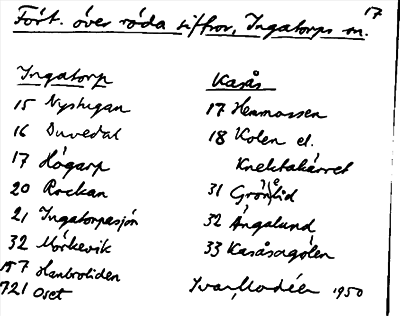 17
Fört. över röda siffror, Ingatorps sn.
Ingatorp
15 Nystugan
16 Duvedal
17 Högarp
20 Rockan
21 Ingatorpasjön
32 Mörkevik
157
721 Oset
Kasås
17 Hemmossen
18 Kolen el.
Knektakärret
31
32 Ängalund
33 Kasåsagölen
Ivar Modéer 1950